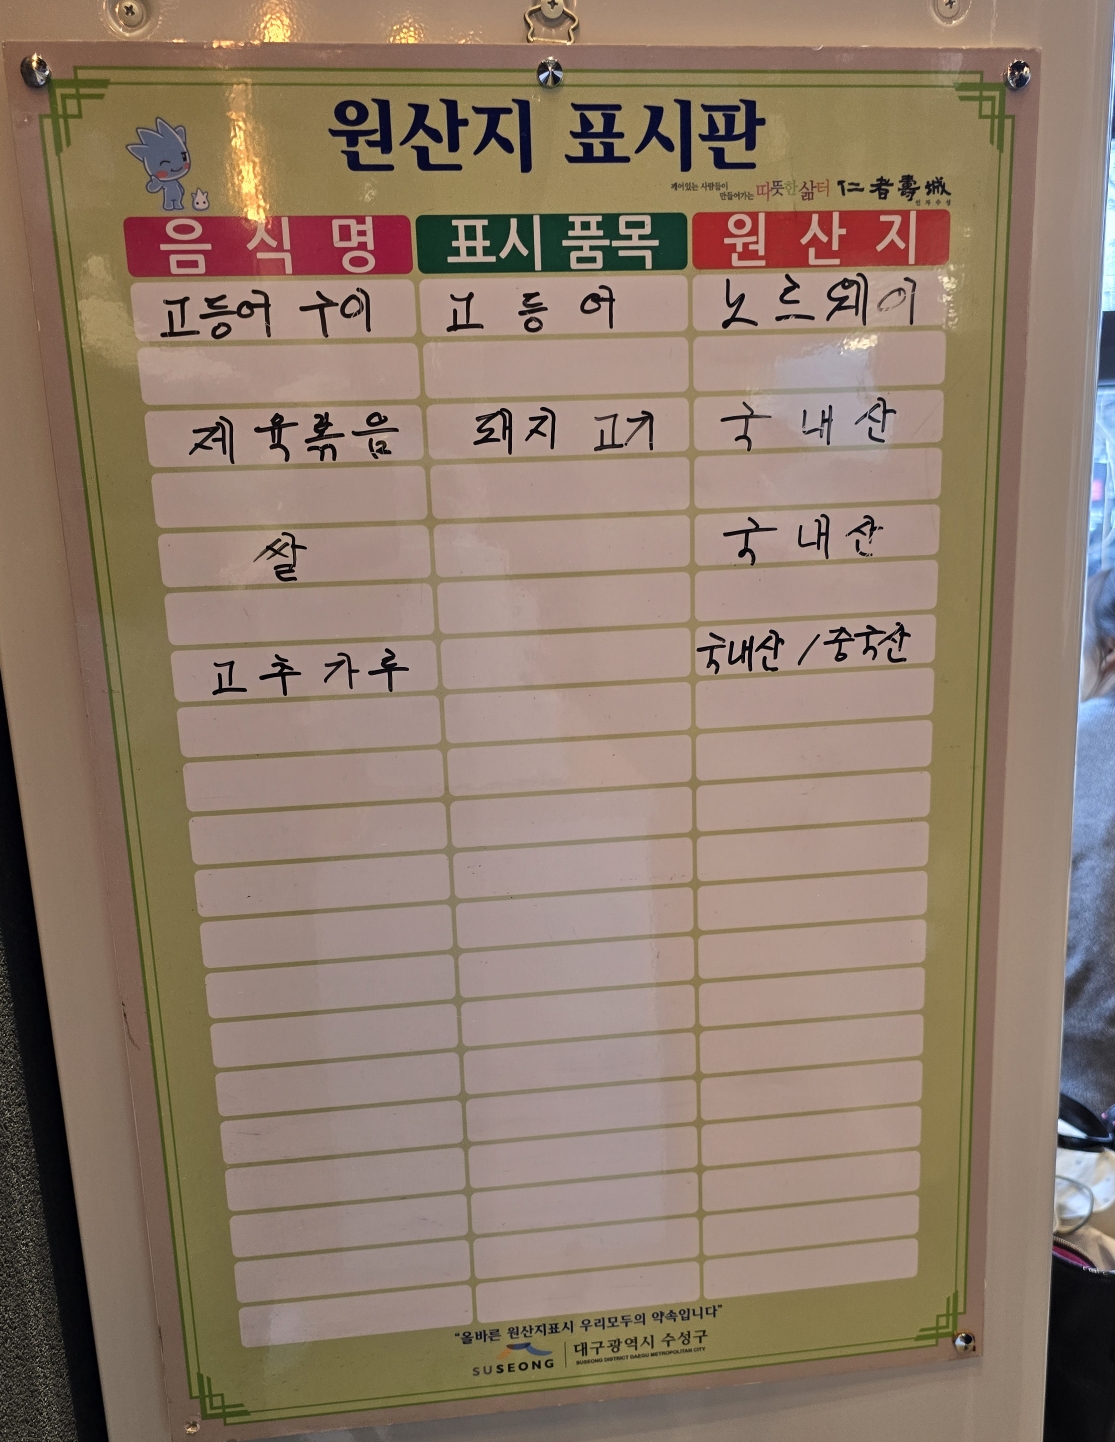 원산지 표시판
깨어있는 사람들이
만들어가는 따뜻한 삶터 仁者壽城
인자수성
음식명 표시품목 원산지
고등어 구이 고등어 노르웨이
제육볶음 돼지고기 국내산
쌀 국내산
고추가루 국내산/중국산
"올바른 원산지표시 우리모두의 약속입니다"
SUSEONG 대구광역시 수성구
SUSEONG DISTRICT DAEGU METROPOLITAN CITY